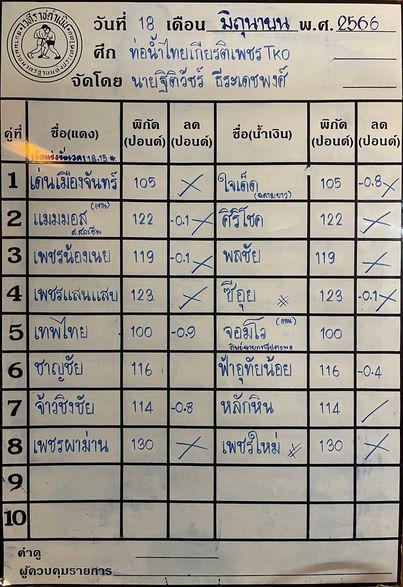 วันที่ 18 เดือน มิถุนายน พ.ศ. 2566
ศึก ท่อน้ำไทยเกียรติเพชร TKO
จัดโดย นายฐิติวัชร์ ธีระเดชพงศ์
คู่ที่ ชื่อ(แดง) พิกัด (ปอนด์) ลด (ปอนด์) ชื่อ(น้ำเงิน) พิกัด (ปอนด์) ลด (ปอนด์)
1 เด่นเมืองจันทร์ 105 ใจเด็ด 105 -0.8
2 แมมมอส (แทน) 122 -0.1 ศิริโชค 122
3 เพชรน้องเนย 119 -0.1 พลชัย 119
4 เพชรแสนแสบ 123 ซีอุย 123 -0.1
5 เทพไทย 100 -0.9 จอมโว (แทน) 100
6 ชาญชัย 116 ฟ้าอุทัยน้อย 116 -0.4
7 จ้าวชิงชัย 114 -0.8 หลักหิน 114
8 เพชรผาม่าน 130 เพชรใหม่ 130
9
10
ค่าดู
ผู้ควบคุมรายการ